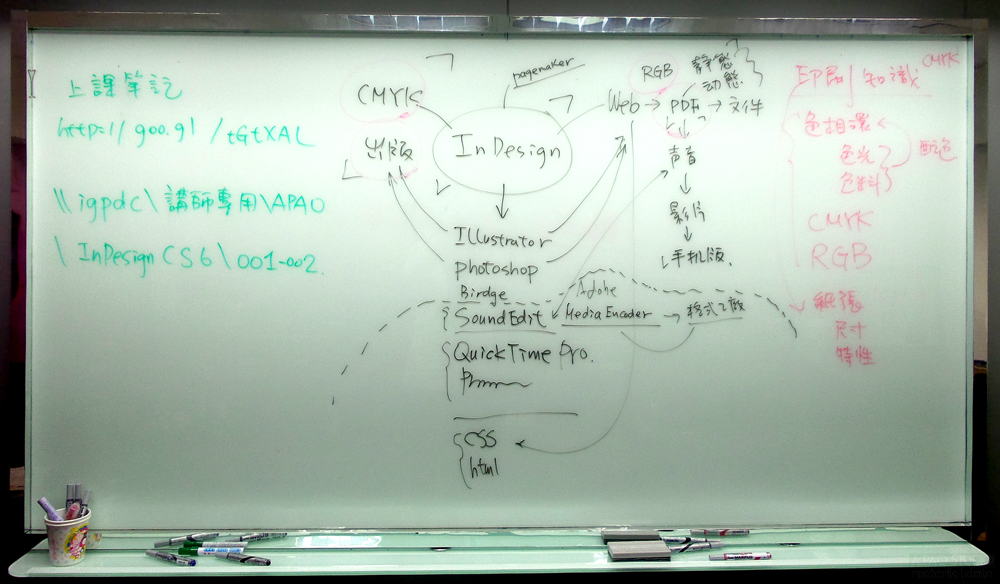 上課筆記
http://goo.gl/tGtXAL
\\igpdc\講師專用\APAO
\InDesign CS6\001-002
pagemaker
CMYK
InDesign
出版
Web → PDF → 文件
RGB
靜態
动態
声音
影片
手机版
Illustrator
photoshop
Birdge
SoundEdit
Adobe
Media Encoder → 格式工廠
QuickTime Pro.
CSS
html
印刷知識
CMYK
色相環
色光
色料
配色
CMYK
RGB
紙張
尺寸
特性